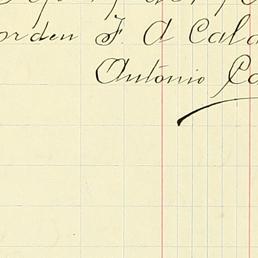 orden F. A Cala
Antonio Ca